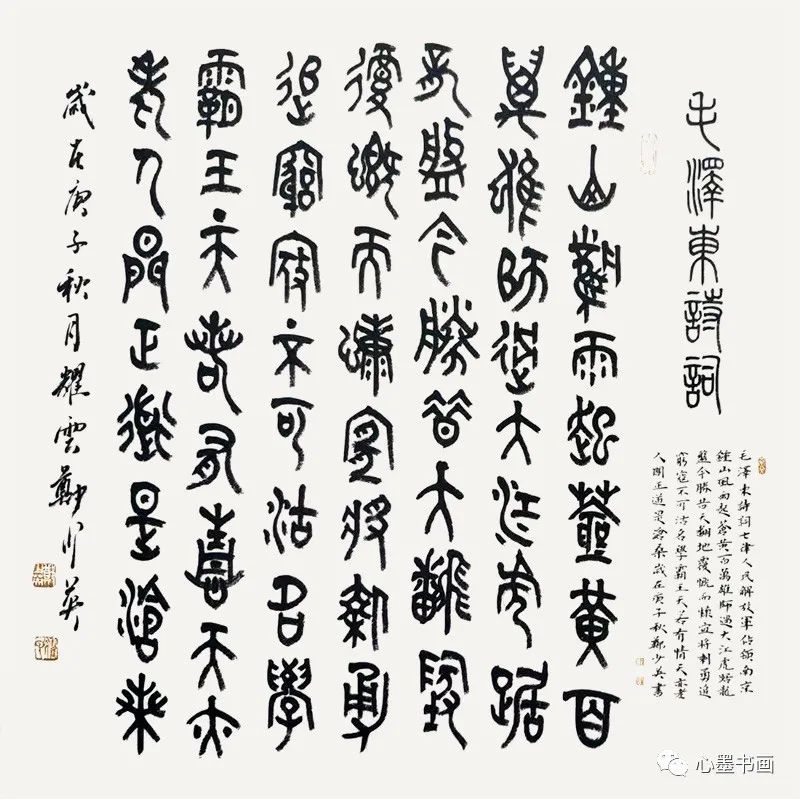 毛澤東詩詞
毛澤東詩詞七律人民解放軍佔領南京
鍾山風雨起蒼黃百萬雄師過大江虎踞龍
盤今勝昔天翻地覆慨而慷宜將剩勇追
窮寇不可沽名學霸王天若有情天亦老
人間正道是滄桑歲在庚子秋鄭少英書
鍾山風雨起蒼黃百
萬雄師過大江虎踞
龍盤今勝昔天翻地
覆慨而慷宜將剩勇
追窮寇不可沽名學
霸王天若有情天亦
老人間正道是滄桑
歲在庚子秋月耀雲鄭少英
心墨书画